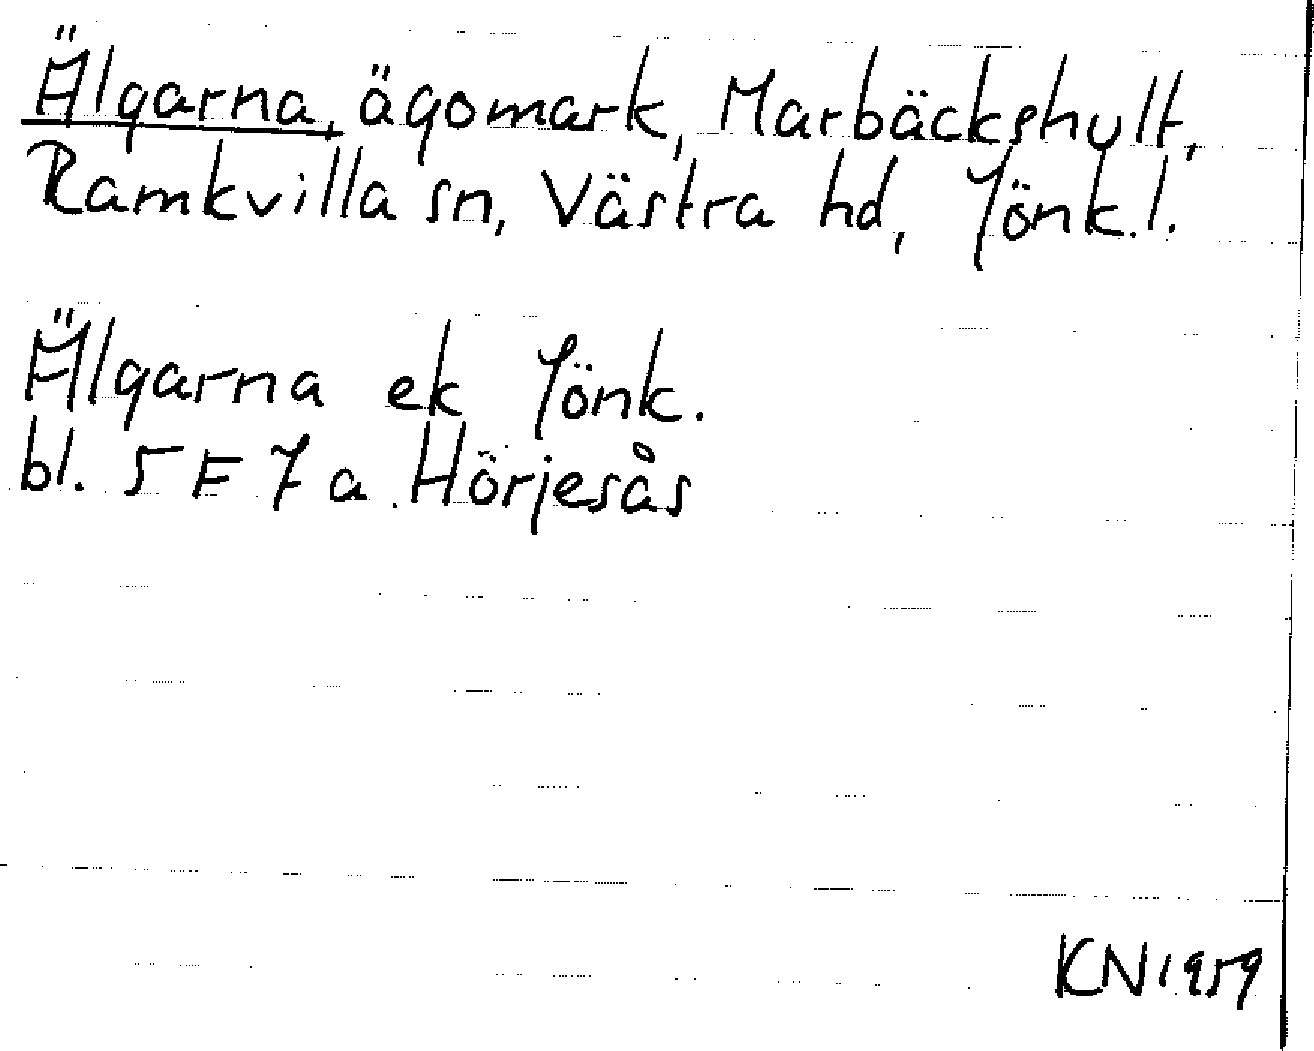 Älgarna, ägomark, Marbäckshult,
Ramkvilla sn, Västra hd, Jönk.l.
Älgarna ek Jönk.
bl. 5 E 7 a Hörjesås
KN 1959